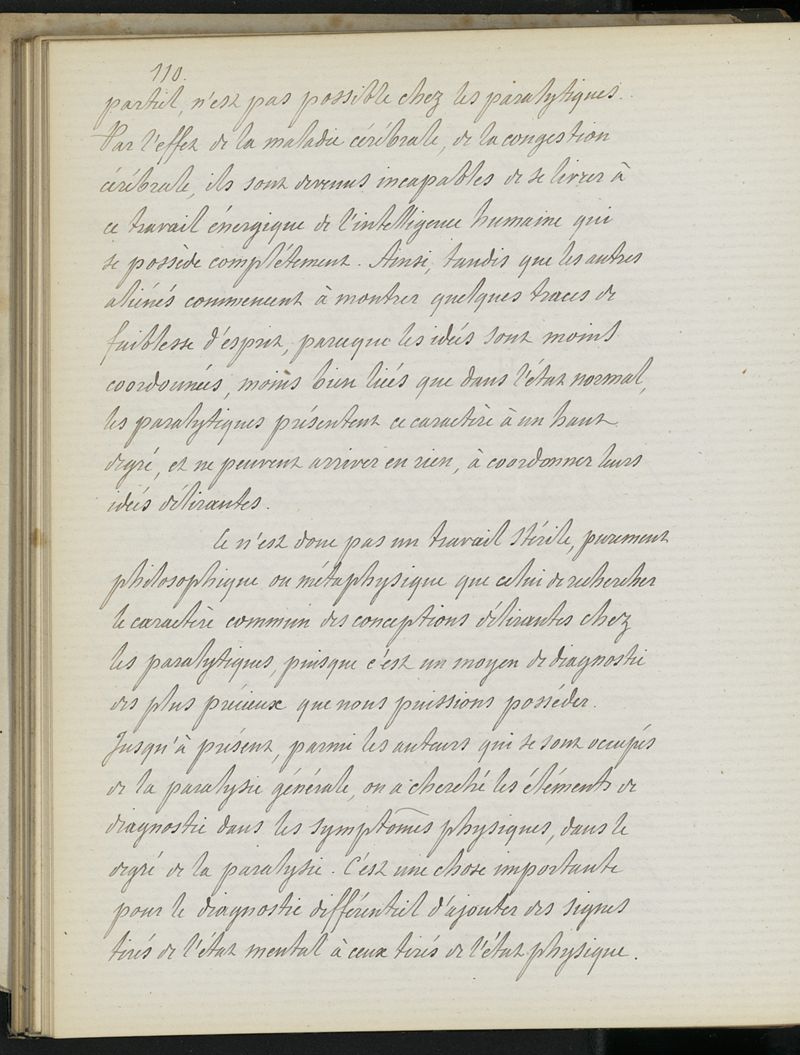 110.
partiel, n'est pas possible chez les paralytiques.
Par l'effet de la maladie cérébrale, de la congestion
cérébrale, ils sont devenus incapables de se livrer à
ce travail énergique de l'intelligence humaine qui
se possède complétement. Ainsi, tandis que les autres
aliénés commencent à montrer quelques traces de
faiblesse d'esprit, parceque les idées sont moins
coordonnées, moins bien liées que dans l'état normal,
les paralytiques présentent ce caractère à un haut
degré, et ne peuvent arriver en rien, à coordonner leurs
idées délirantes.
Ce n'est donc pas un travail stérile, purement
philosophique ou métaphysique que celui de rechercher
le caractère commun des conceptions délirantes chez
les paralytiques, puisque c'est un moyen de diagnostic
des plus précieux que nous puissions posséder.
Jusqu'à présent, parmi les auteurs qui se sont occupés
de la paralysie générale, on a cherché les éléments de
diagnostic dans les symptômes physiques, dans le
degré de la paralysie. C'est une chose importante
pour le diagnostic différentiel d'ajouter des signes
tirés de l'état mental à ceux tirés de l'état physique.